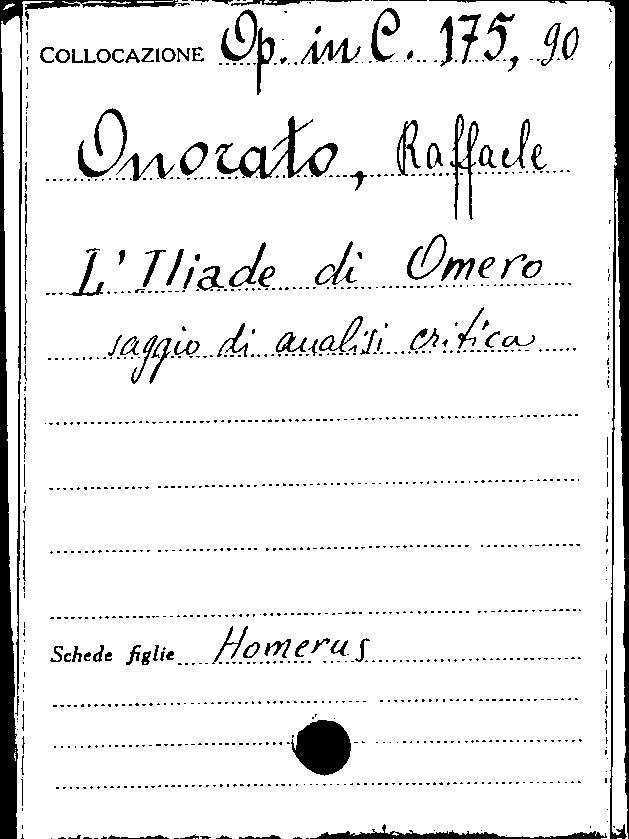 COLLOCAZIONE Op. in C. 175, 90
Onorato, Raffaele
L'Iliade di Omero
saggio di analisi critica
Schede figlie Homerus